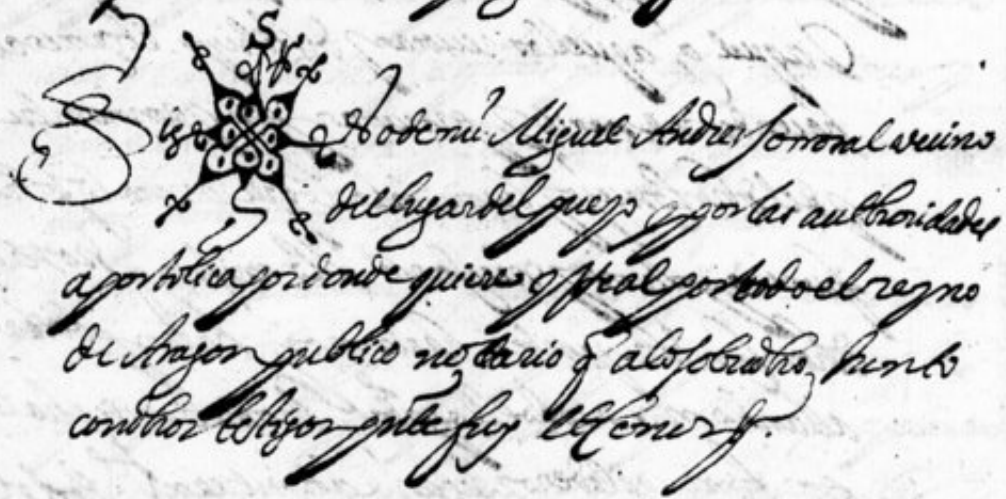 Sig no de mi Miguel Andres Sorrosal vecino
del lugar del pueyo y por las authoridades
apostolica por donde quiere y Real por todo el reyno
de Aragon publico notario q a lo sobredho Junto
con dhos testigos pnte fuy et cerre